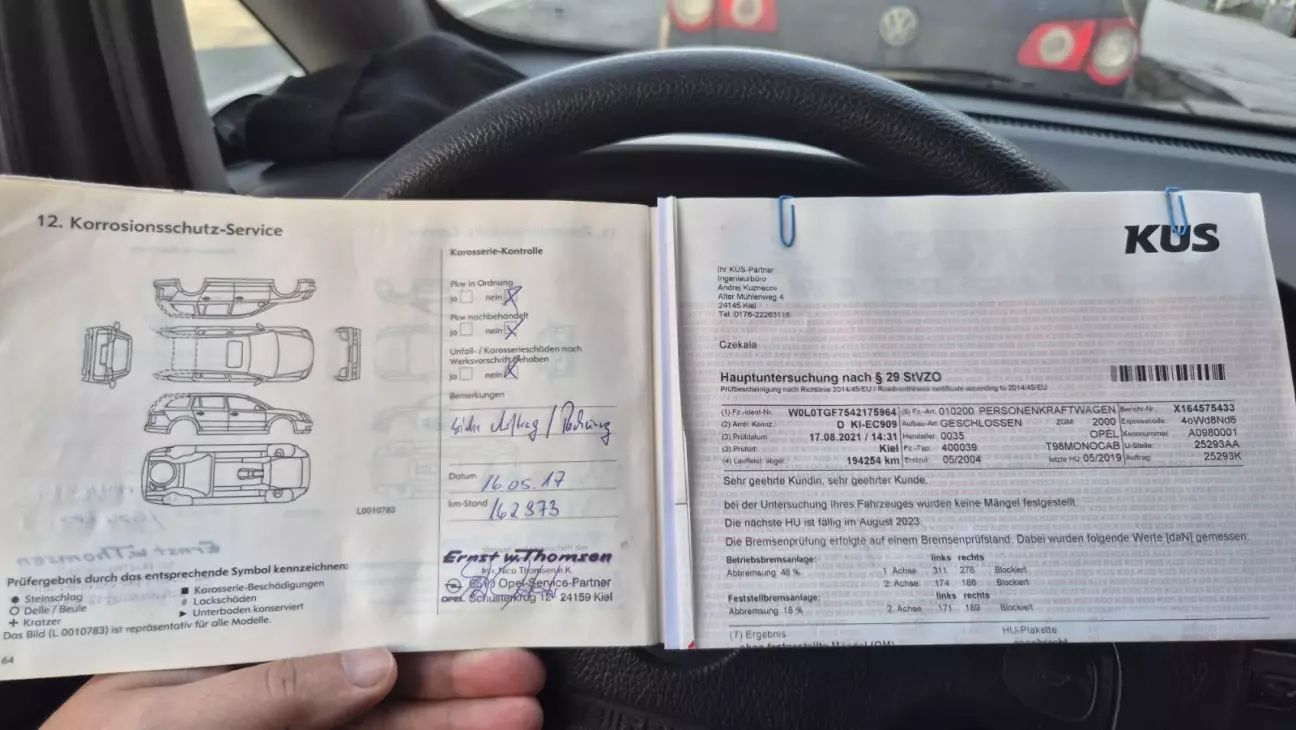 12. Korrosionsschutz-Service
L0010783
Prüfergebnis durch das entsprechende Symbol kennzeichnen:
● Steinschlag
○ Delle / Beule
+ Kratzer
■ Karosserie-Beschädigungen
# Lackschäden
► Unterboden konserviert
Das Bild (L 0010783) ist repräsentativ für alle Modelle.
64
Karosserie-Kontrolle
Pkw in Ordnung
ja nein
Pkw nachbehandelt
ja nein
Unfall- / Karosserieschäden noch
Werksvorschrift behoben
ja nein
Bemerkungen
siehe Auftrag / Rechnung
Datum 16.05.17
km-Stand 162873
Ernst w. Thomsen
Inh. Nico Thomsen e.K.
Opel-Service-Partner
OPEL Schusterkrug 12 24159 Kiel
KÜS
Ihr KÜS-Partner
Ingenieurbüro
Andrej Kuznecov
Alter Mühlenweg 4
24145 Kiel
Tel. 0176-22263116
Czekala
Hauptuntersuchung nach § 29 StVZO
Prüfbescheinigung nach Richtlinie 2014/45/EU / Roadworthiness certificate according to 2014/45/EU
(1) Fz.-Ident-Nr. W0L0TGF7542175964 (5) Fz.-Art 010200 PERSONENKRAFTWAGEN Bericht-Nr. X164575433
(2) Amtl. Kennz. D KI-EC909 Aufbau-Art GESCHLOSSEN ZGM 2000 Expresscode 4oWd8Nd6
(3) Prüfdatum 17.08.2021 / 14:31 Hersteller 0035 OPEL Kennnummer A0980001
(3) Prüfort Kiel Fz.-Typ 400039 T98MONOCAB U-Stelle 25293AA
(4) Laufleist. abgel. 194254 km Erstzul 05/2004 letzte HU 05/2019 Auftrag 25293K
Sehr geehrte Kundin, sehr geehrter Kunde,
bei der Untersuchung Ihres Fahrzeuges wurden keine Mängel festgestellt.
Die nächste HU ist fällig im August 2023.
Die Bremsenprüfung erfolgte auf einem Bremsenprüfstand. Dabei wurden folgende Werte [daN] gemessen:
Betriebsbremsanlage: links rechts
Abbremsung 48 % 1. Achse 311 278 Blockiert
2. Achse 174 188 Blockiert
Feststellbremsanlage: links rechts
Abbremsung 18 % 2. Achse 171 189 Blockiert
(7) Ergebnis HU-Plakette
ohne festgestellte Mängel (OM) angebracht